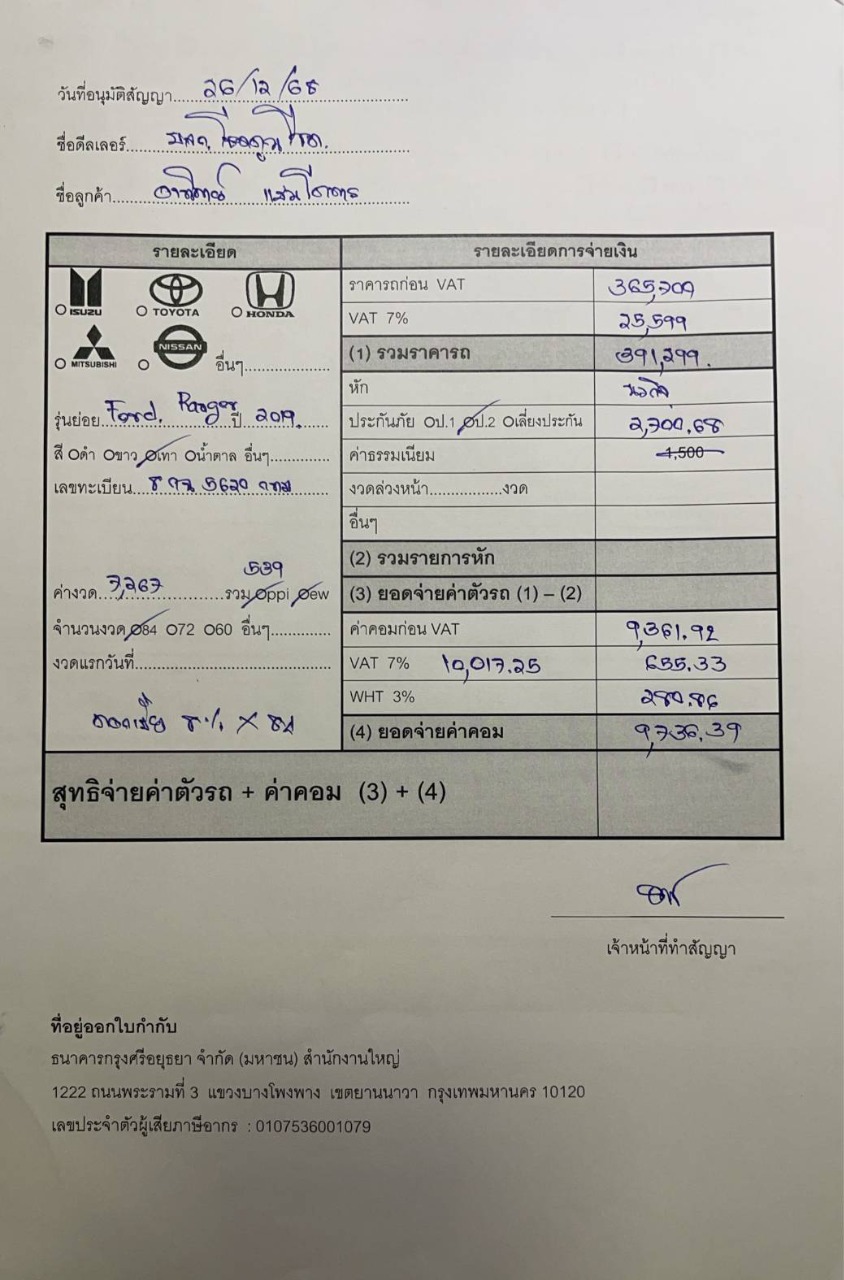 วันที่อนุมัติสัญญา....26/12/68....
ชื่อดีลเลอร์....
ชื่อลูกค้า....
รายละเอียด รายละเอียดการจ่ายเงิน
ISUZU TOYOTA HONDA
ราคารถก่อน VAT 365,709
VAT 7% 25,599
MITSUBISHI NISSAN อื่นๆ....
(1) รวมราคารถ 391,299.
หัก
รุ่นย่อย Ford. Ranger ปี 2019.
ประกันภัย Oป.1 Oป.2 Oเลี่ยงประกัน 2,700.68
สี Oดำ Oขาว Oเทา Oน้ำตาล อื่นๆ....
ค่าธรรมเนียม 1,500
เลขทะเบียน.... 5620 กทม
งวดล่วงหน้า....งวด
อื่นๆ
(2) รวมรายการหัก
539
ค่างวด 7,267 รวม Oppi Oew
(3) ยอดจ่ายค่าตัวรถ (1) – (2)
จำนวนงวด O84 O72 O60 อื่นๆ....
ค่าคอมก่อน VAT 9,361.92
งวดแรกวันที่....
VAT 7% 10,017.25 655.33
WHT 3% 280.86
ดอกเบี้ย 8% X 84
(4) ยอดจ่ายค่าคอม 9,736.39
สุทธิจ่ายค่าตัวรถ + ค่าคอม (3) + (4)
เจ้าหน้าที่ทำสัญญา
ที่อยู่ออกใบกำกับ
ธนาคารกรุงศรีอยุธยา จำกัด (มหาชน) สำนักงานใหญ่
1222 ถนนพระรามที่ 3 แขวงบางโพงพาง เขตยานนาวา กรุงเทพมหานคร 10120
เลขประจำตัวผู้เสียภาษีอากร : 0107536001079